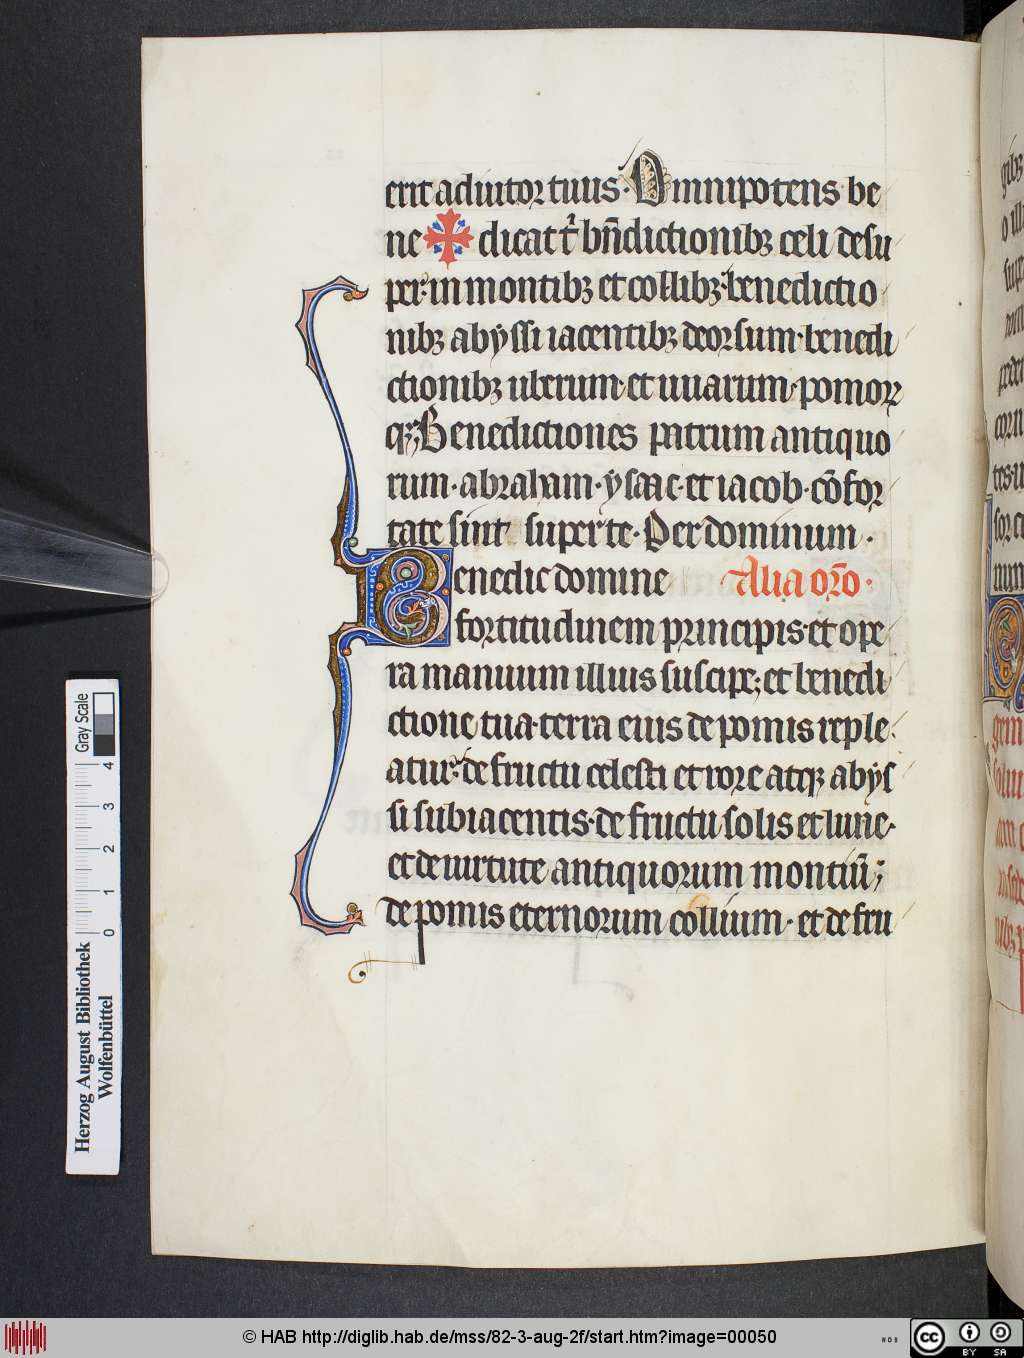 erit adiutor tuus· Omnipotens be
ne ✠ dicat t̾ bn̄dictionibꝫ celi desu
per· in montibꝫ et collibꝫ· benedictio
nibꝫ abyssi iacentibꝫ deorsum· benedi
ctionibꝫ uberum· et uuarum· pomorꝝ
qꝫ; Benedictiones patrum antiquo
rum· abraham· ysaac· et iacob· cōfor
tate sint super te· Per dominum·
Benedic domine Alia oro̅·
fortitudinem principis· et ope
ra manuum illius suscipe; et benedi
ctione tua· terra eius de pomis reple
atur· de fructu celesti et rore atqꝫ abys
si subiacentis· de fructu solis et lune·
et de uirtute antiquorum montiū;
de pomis eternorum collium· et de fru
Gray Scale
0 1 2 3 4
Herzog August Bibliothek
Wolfenbüttel
© HAB http://diglib.hab.de/mss/82-3-aug-2f/start.htm?image=00050
WDB
cc BY SA